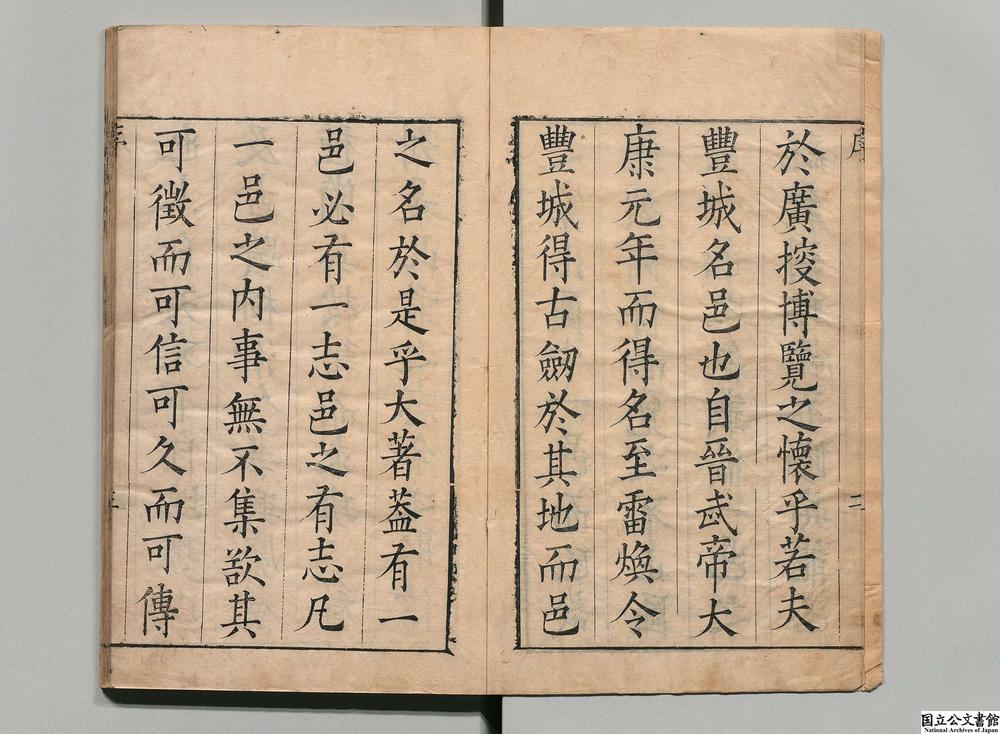 於廣搜博覽之懷乎若夫
豐城名邑也自晉武帝大
康元年而得名至雷煥令
豐城得古劒於其地而邑
之名於是乎大著葢有一
邑必有一志邑之有志凡
一邑之内事無不集欲其
可徵而可信可久而可傳
序
二
国立公文書館
National Archives of Japan